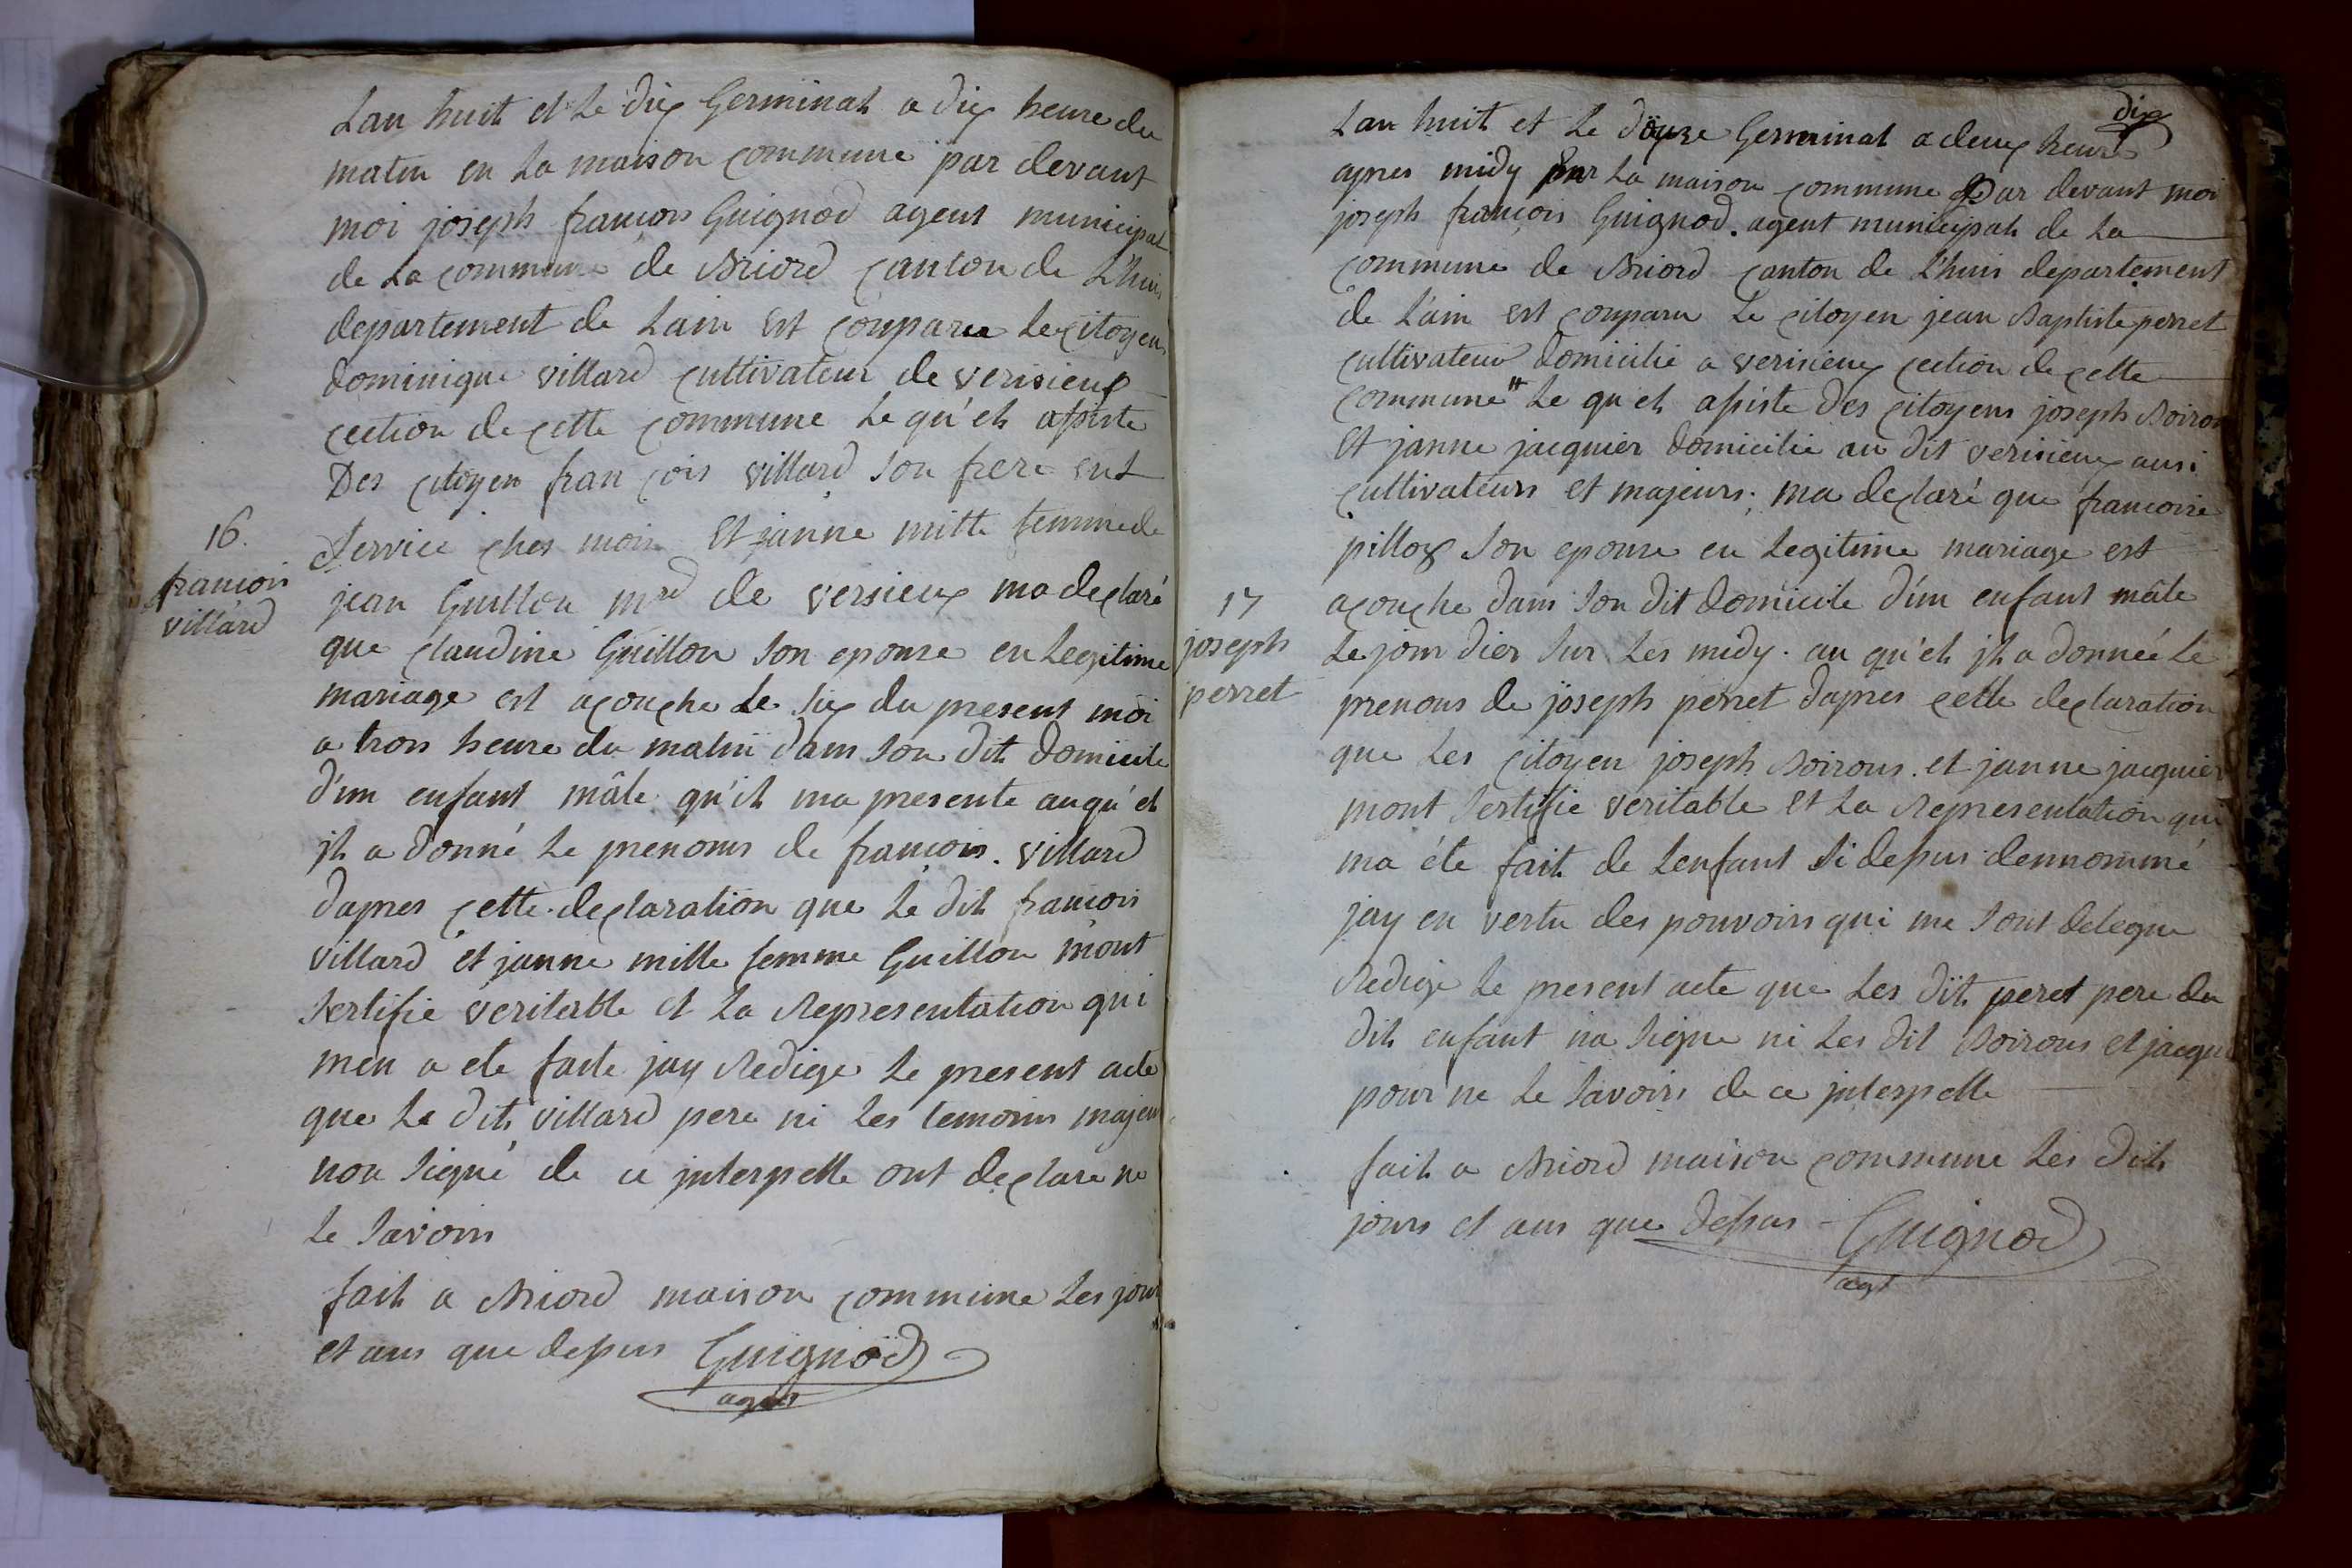 Lan huit et Le dix Germinal a dix heure du
matin en La maison commune par devant
moi joseph francois Guignod agent municipal
de La commune de Briord canton de Lhuis
departement de Lain est comparu Le citoyen
dominique villard cultivateur de verisieux
cection de cette commune Le qu'el assiste
Des citoyen fran cois villard son frere ent
16.
service ches moin Et janne mille femme de
francois
villard
jean Guillon md de versieux ma declaré
que claudine Guillon son epouse en Legitime
mariage est acouche Le six du present moi
a trois heure du matin dans son dit domicile
d'un enfant mâle qu'il ma presente auqu'el
jl a donné Le prenoms de francois. villard
dapres cette declaration que Le dit francois
villard et janne mille femme Guillon mont
sertifie veritable et La Representation qui
men a ete faite jay Redige Le present acte
que Le dit villard pere ni Les temoins majeur
non signé de ce jnterpelle ont declare ne
Le savoir
fait a Briord maison commune Les jour
et ans que dessus Guignod
agent
dix
Lan huit et Le douze Germinal a deux heure
apres midy La maison commune Par devant moi
joseph francois Guignod. agent municipal de La
commune de Briord canton de Lhuis departement
de L'ain est comparu Le citoyen jean Baptiste perret
cultivateur domicilié a verisieux cection de cette
commune" Le qu el assiste des citoyens joseph Boiron
Et janne jacquier domicilie au dit verisieux ausi
cultivateurs et majeurs; ma declaré que francoise
pilloz son epouse en Legitime mariage est
17
joseph
perret
acouche dans son dit domicile d'un enfant mâle
Le jour dier sur Les midy. au qu'el jl a donnée Le
prenoms de joseph perret dapres cette declaration
que Les citoyen joseph Boirons. et janne jacquier
mont sertifie veritable et La Representation qui
ma éte fait de Lenfant si dessus dennommé
jay en vertu des pouvoirs qui me sont delegue
Redige Le present acte que Les dit peret pere du
dit enfant na signe ni Les dit Boirons et jacqui
pour ne Le savoirs de ce jnterpelle
fait a Briord maison commune Les dit
jours et ans que dessus - Guignod
agt